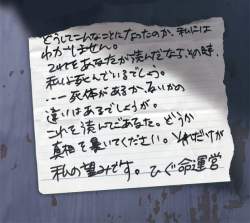 どうしてこんなことになったのか、私には
わかりません。
これをあなたが読んだなら、その時、
私は死んでいるでしょう。
…死体があるか、ないかの
違いはあるでしょうが。
これを読んだあなた。どうか
真相を暴いてください。それだけが
私の望みです。ひぐ命運営